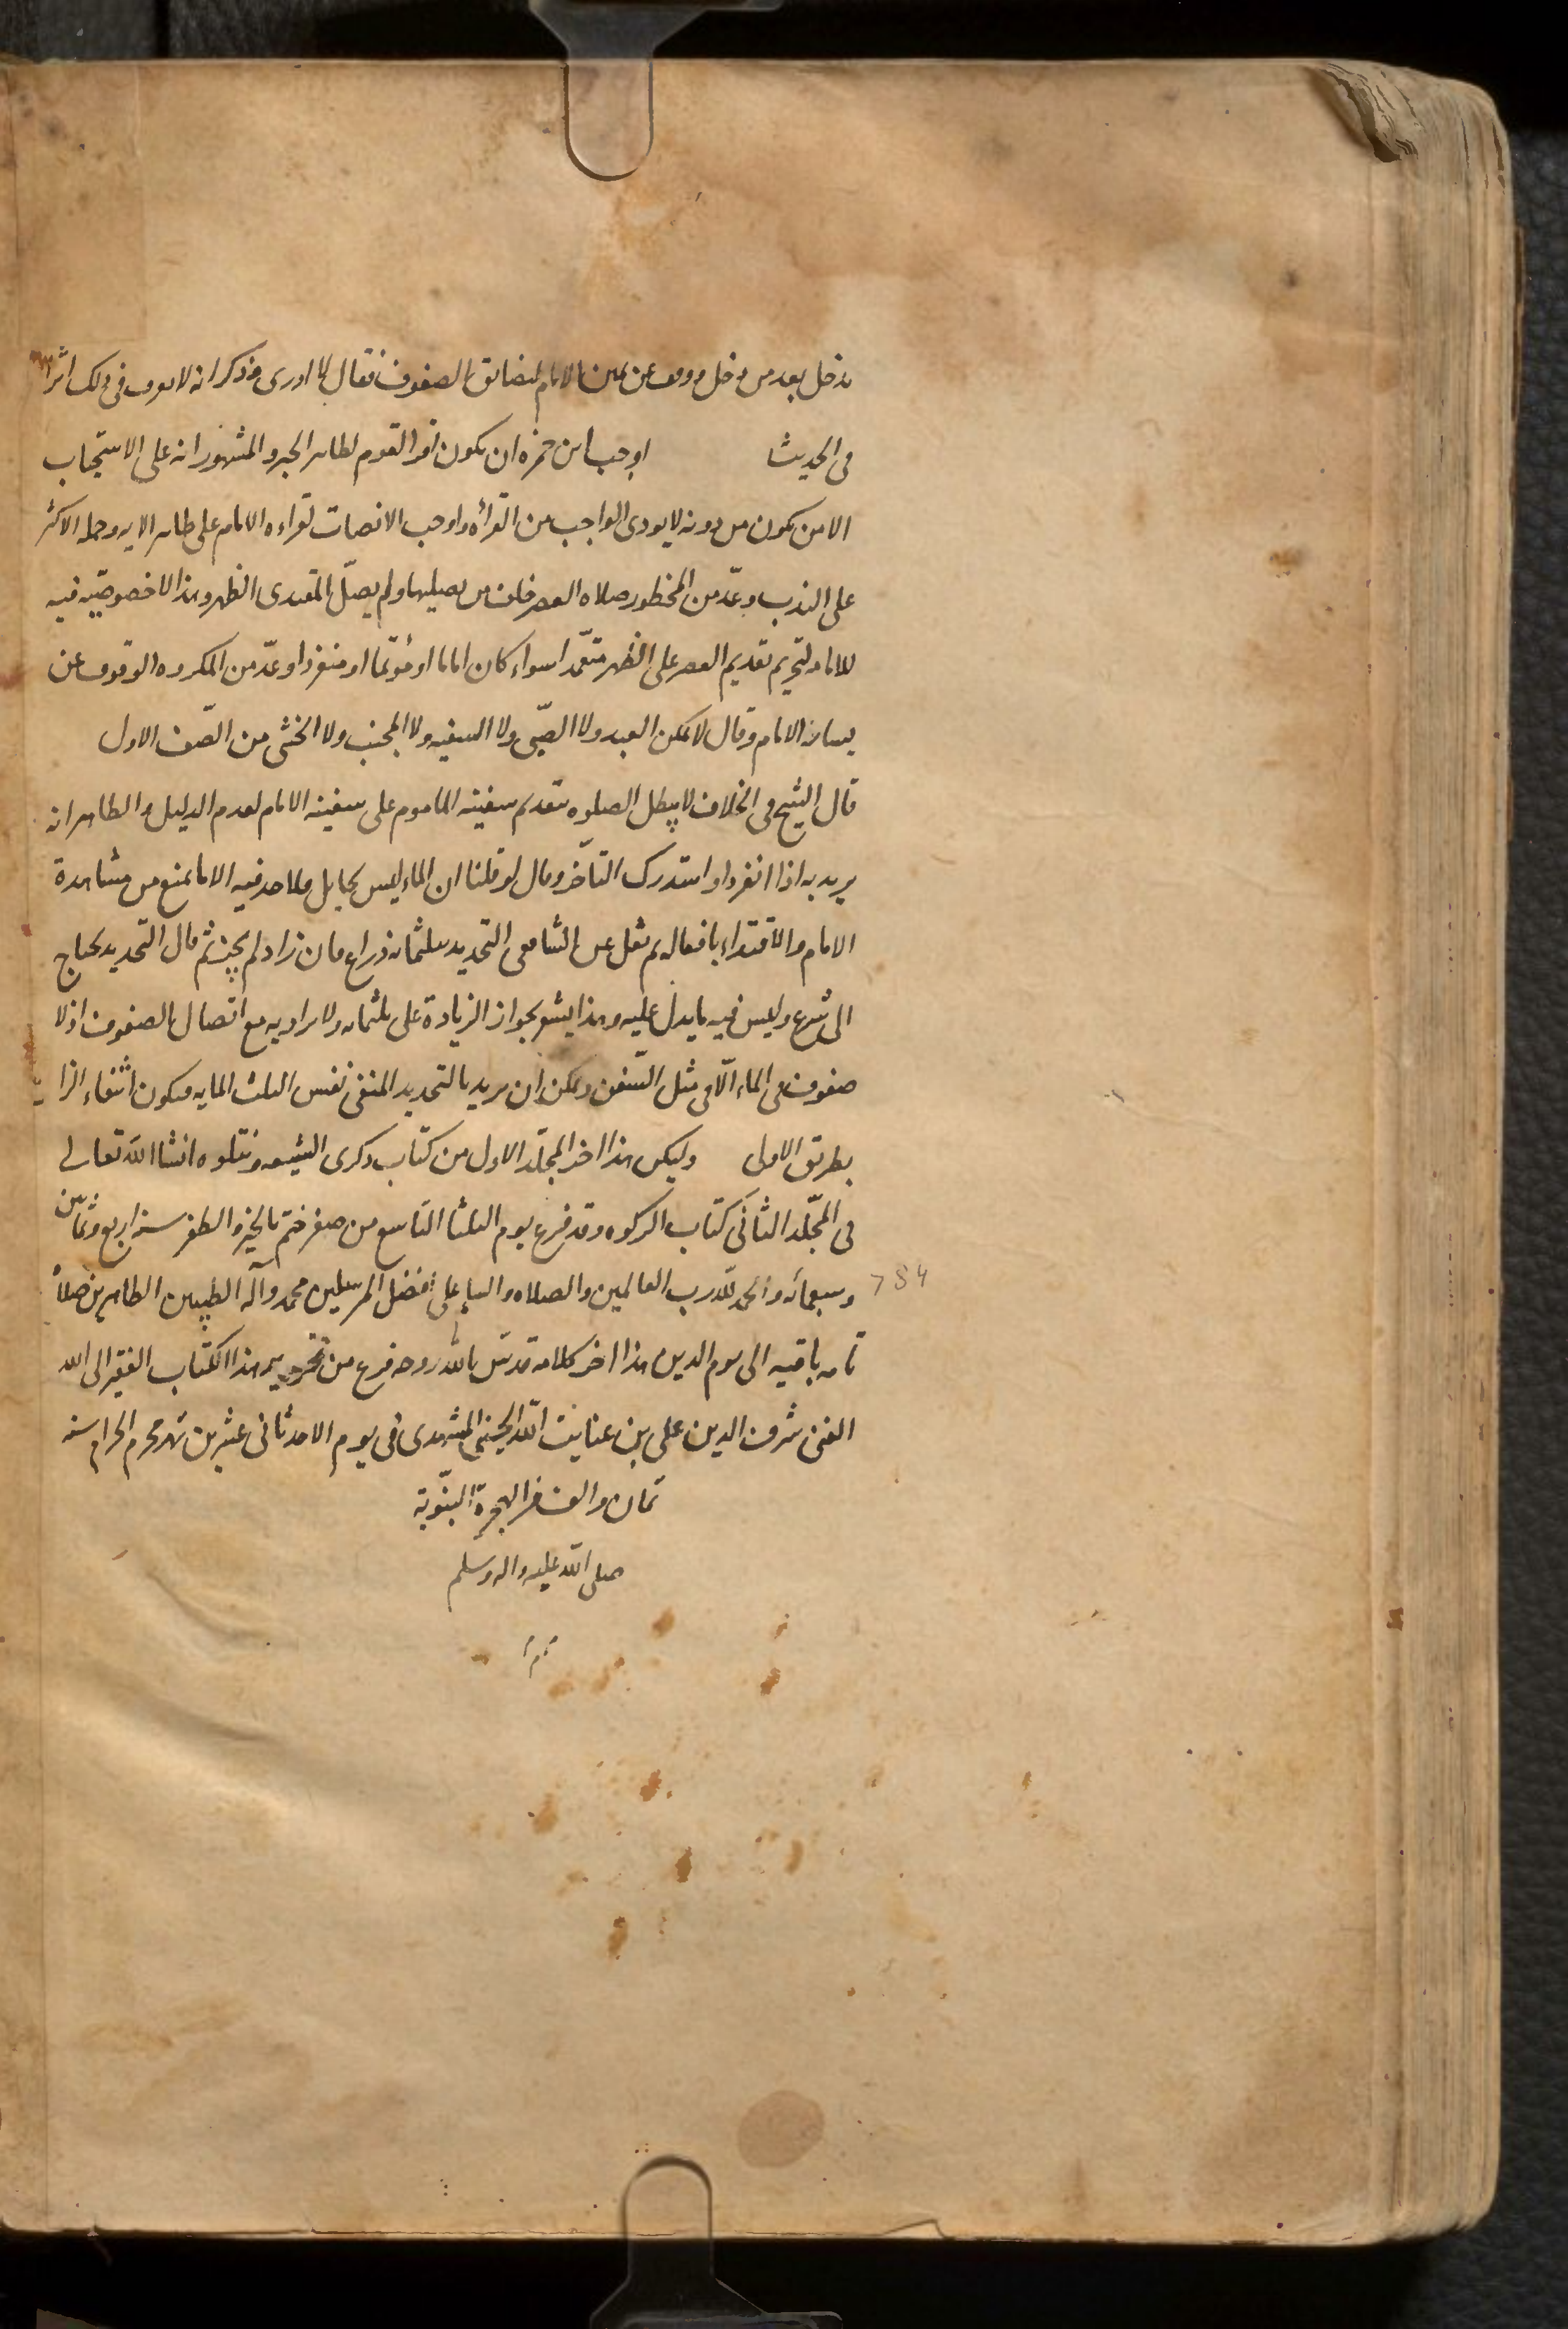 يدخل بعد من دخل ووقف عن يمين الامام لتضايق الصفوف فقال لا ادرى وذكر انه لا يعرف فى ذلك اثرا
فى الحديث اوجب ابن حمزه ان يكون اقرا القوم لظاهر الخبر والمشهور انه على الاستحباب
الا من يكون من دونه لا يودى الواجب من القرأه واوجب الانصات لقراءه الامام على ظاهر الايه وحمله الاكثر
على الندب وعدّ من المحظور صلاه العصر خلف من يصليها ولم يصلّ المقتدى الظهر وهذا لا خصوصيّه فيه
للامامه لتحريم تقديم العصر على الظهر متعمّدا سواء كان اماما او مؤتما او منفردا وعدّ من المكروه الوقوف عن
يسار الامام وقال لا يمكن العبد ولا الصبّى ولا السفيه ولا المجنب ولا الخنثى من الصّف الاول
قال الشيخ فى الخلاف لا يبطل الصلوه بتقديم سفينه الماموم على سفينه الامام لعدم الدليل والظاهر انه
يريد به اذا انفرد او استدرك التأخر وقال لو قلنا ان الماء ليس بحايل ولا حد فيه الا ما يمنع من مشاهدة
الامام والاقتداء بافعاله ثم نقل عن الشافعى التحديد بثلثمائه ذراع فان زاد لم يجز ثم قال التحديد يحتاج
الى شرع وليس فيه ما يدل عليه وهذا يشعر بجواز الزيادة على ثلثمائه ولا يراد به مع اتصال الصفوف اذ لا
صفوف فى الماء الّا فى مثل السّفن ويمكن ان يريد بالتحديد المنفى نفس الثلث المايه فيكون انتفاء الزايد
بطريق الاولى وليكن هذا اخر المجلّد الاول من كتاب ذكرى الشيعه ونتلوه انشا الله تعالى
فى المجلّد الثانى كتاب الزكوه وقد فرغ يوم الثلثا التاسع من صفر ختم بالخير والظفر سنه اربع وثمانين
وسبعمائه والحمد لله رب العالمين والصلاه والسلام على افضل المرسلين محمد وآله الطيبين الطاهرين صلاة
784
تامه باقيه الى يوم الدين هذا اخر كلامه قدس الله روحه فرغ من تحرير هذا الكتاب الفقير الى الله
الغنى شرف الدين على بن عنايت الله المشهدى فى يوم الاحد ثانى عشرين شهر محرم الحرام سنه
ثمان والف من الهجرة النبّوية
صلى الله عليه واله وسلم